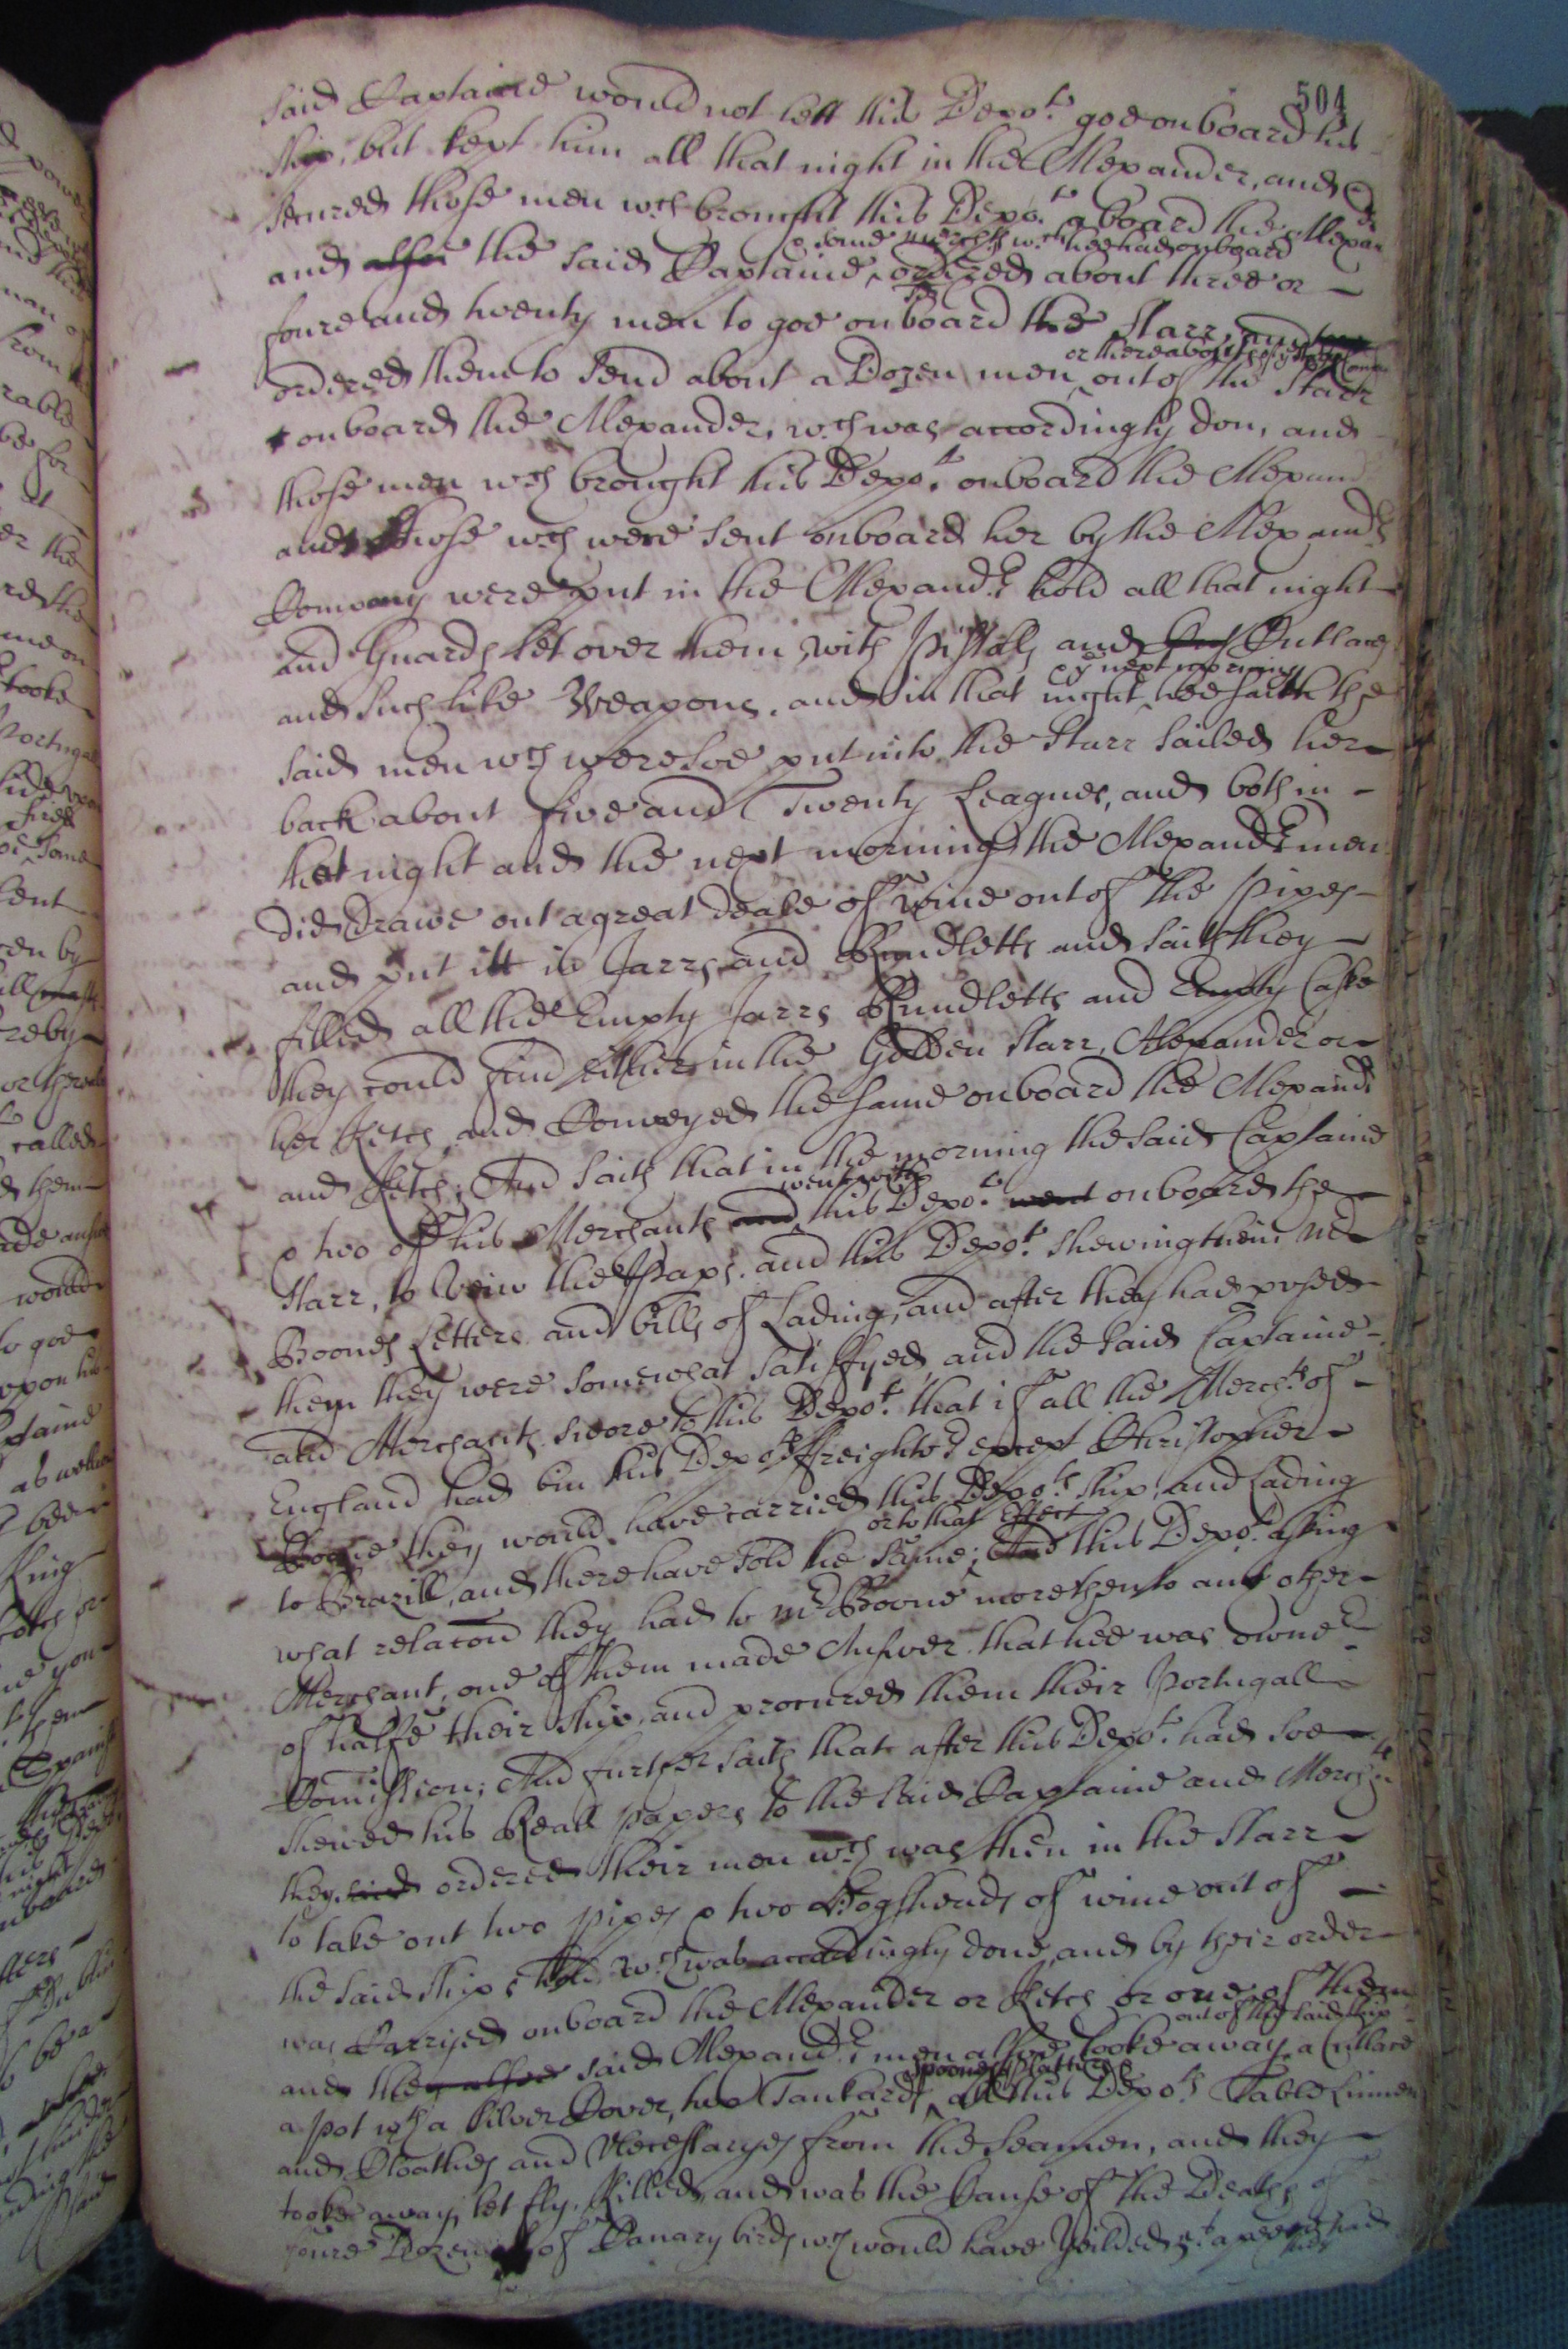 504
said Captaine would not lett this Depo.t goe onboard his
ship, but kept him all that night in the Alexander, and
secured those men w.ch brought this Depo.t aboard the Alexan
& some merch.ts w.ch hee had onboard
and the said Captaine ordered about three or
foure and twenty men to goe onboard the Starr, and
or thereabouts
ordered them to send about a Dozen men out of the Starr
onboard the Alexander, w.ch was accordingly don, and
those men w.ch brought this Depo.t onboard the Alexand
and those w.ch were sent onboard her by the Alexand.rs
Company were put in the Alexand.rs hold all that night
and Guards set over them with Pistolls and Cutlaces
& y.e next morning
and such like Weapons, and in that night hee saith the
said men w.ch were soe put into the Starr sailed her
back about five and Twenty Leagues, and both in
that night and the next morning the Alexand.rs men
did drawe out a great deale of wine out of the Pipes
and put itt in Jarrs and Rundletts and saith they
filled all the Empty Jarrs Rundletts and Empty Caske
they could find either in the Golden Starr, Alexander or
her Ketch, and Conveyed the same onboard the Alexand.r
and Ketch; And saith that in the morning the said Captaine
went with
& two of his Merchants and this Depo.t went onboard the
Starr, to veiw the Paprs. and this Depo.t shewing them M.r
Boones Letters and bills of Lading, and after they had p'used
them they were somewhat satisfyed, and the said Captaine
and Merchants swore to this Depo.t that if all the Merch.ts of
England had bin this Depo.ts ffreighto.rs except Christopher
Boone they would have carried this Depo.ts ship and Lading
or to that Effect
to Brazill, and there have sold the same; And this Depo.t asking
what relacon they had to M.r Boone more then to any other
Merchant, one of them made Answer that hee was owne.r
of halfe their ship, and procured them their Portugall
Comission; And further saith that after this Depo.t had soe
shewed his Reall papers to the said Captaine and Merch.ts
they ordered their men w.ch was then in the Starr
to take out two Pipes & two Hogsheads of wine out of
the said ships Hold, w.ch was accordingly done, and by their order
was Carryed onboard the Alexander or Ketch or one of them
out of the said ship
and the said Alexand.rs men alsoe tooke away a Cutlace
spoones, platters
a pot w.th a silver Cover, two Tankards, all this Depo.ts Table Linnen
and Cloathes and Necessaryes from the Seamen, and they
tooke away, let fly, killed, and was the Cause of the Death of
foure Dozen of Canary birds w.ch would have Yeilded 5.s apeece had